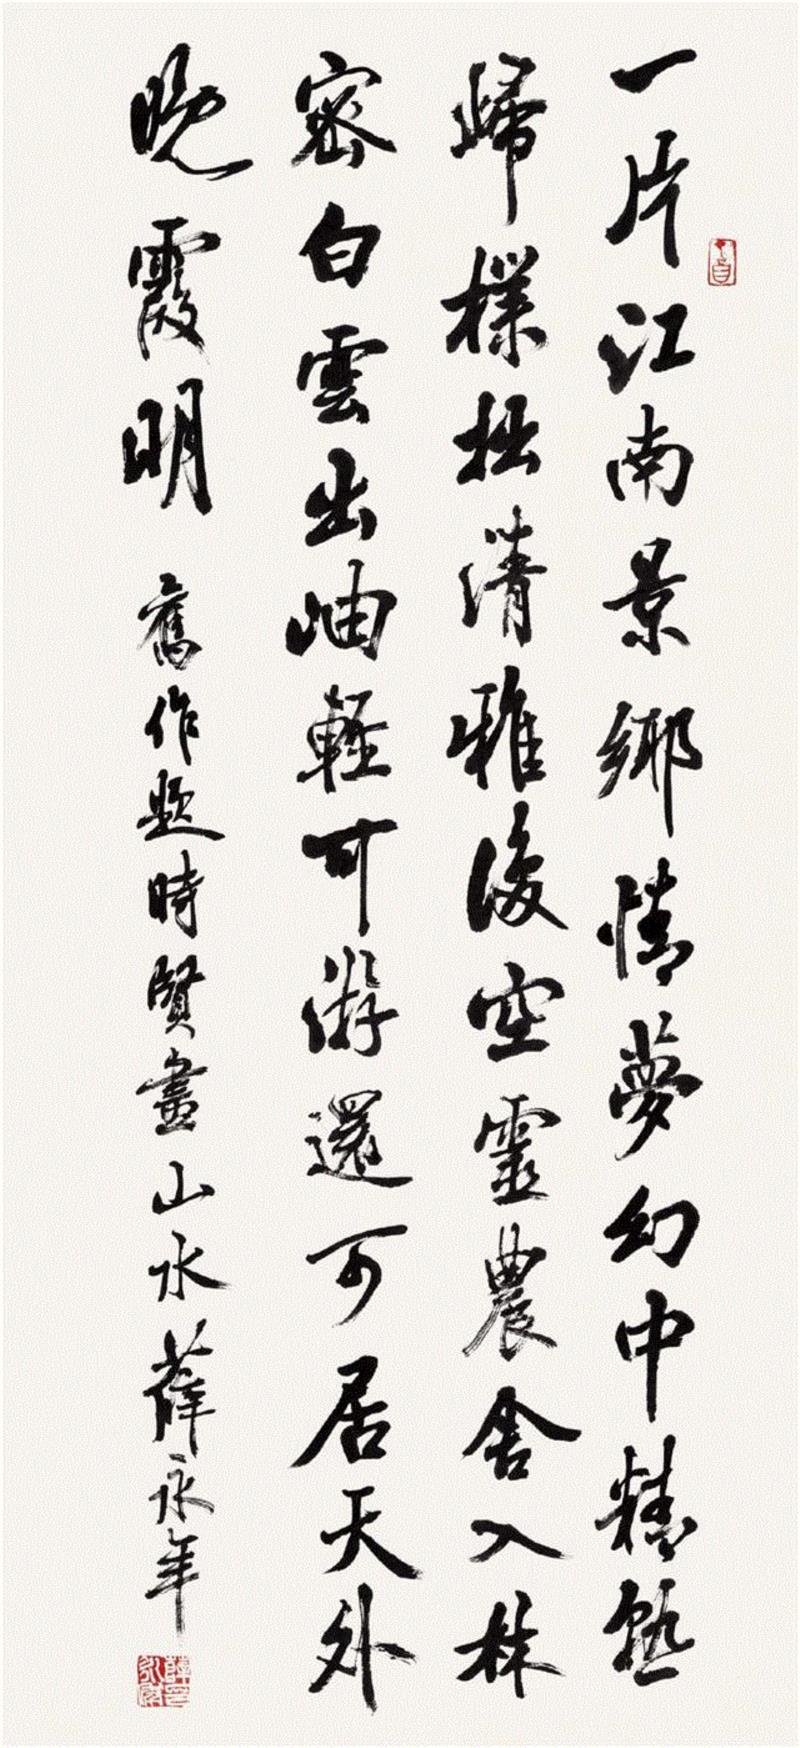 一片江南景鄉情夢幻中精熟
歸樸拙清雅復空靈農舍入林
密白雲出岫輕可游還可居天外
晚霞明 舊作題時賢畫山水薛永年